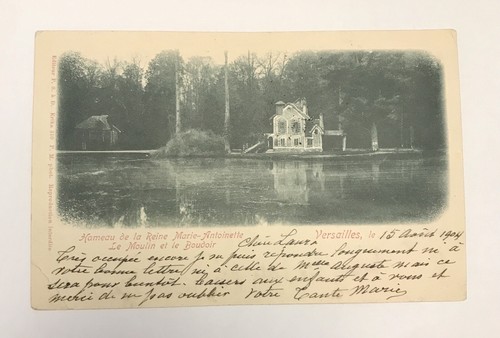 Hameau de la Reine Marie-Antoinette
Le Moulin et le Boudoir
Versailles, le 15 Août 1904
Chère Laura
Très occupée encore je ne puis répondre longuement ni à
votre bonne lettre, ni à celle de Melle Auguste mais ce
sera pour bientôt. Baisers aux enfants et à vous et
merci de ne pas oublier Votre Tante Marie
Editeur P. S. à D. Reproduction interdite